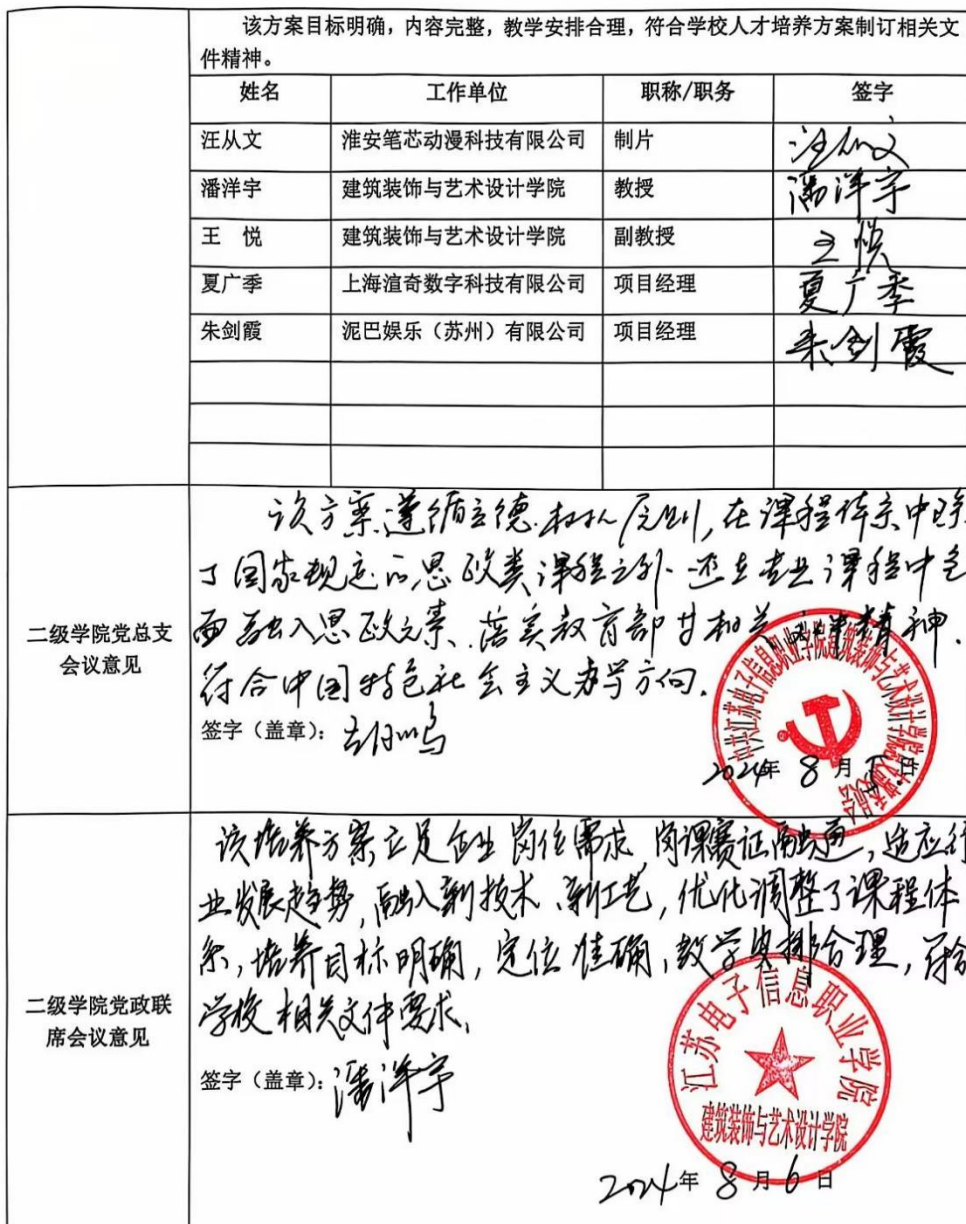 该方案目标明确，内容完整，教学安排合理，符合学校人才培养方案制订相关文
件精神。
姓名 工作单位 职称/职务 签字
汪从文 淮安笔芯动漫科技有限公司 制片 汪从文
潘洋宇 建筑装饰与艺术设计学院 教授 潘洋宇
王 悦 建筑装饰与艺术设计学院 副教授 王悦
夏广季 上海渲奇数字科技有限公司 项目经理 夏广季
朱剑霞 泥巴娱乐（苏州）有限公司 项目经理 朱剑霞
二级学院党总支
会议意见
该方案遵循立德树人原则，在课程体系中除
了国家规定的思政类课程之外还在专业课程中全
面融入思政元素、落实教育部
相关文件精神，
符合中国特色社会主义办学方向。
签字（盖章）：
2024年 8 月 日
中共江苏电子信息职业学院建筑装饰与艺术设计学院
二级学院党政联
席会议意见
该培养方案立足企业岗位需求，岗课赛证融通，适应行
业发展趋势，融入新技术、新工艺，优化调整了课程体
系，培养目标明确，定位准确，教学安排合理，符合
学校相关文件要求。
签字（盖章）：潘洋宇
江苏电子信息职业学院
建筑装饰与艺术设计学院
2024 年 8 月 6 日